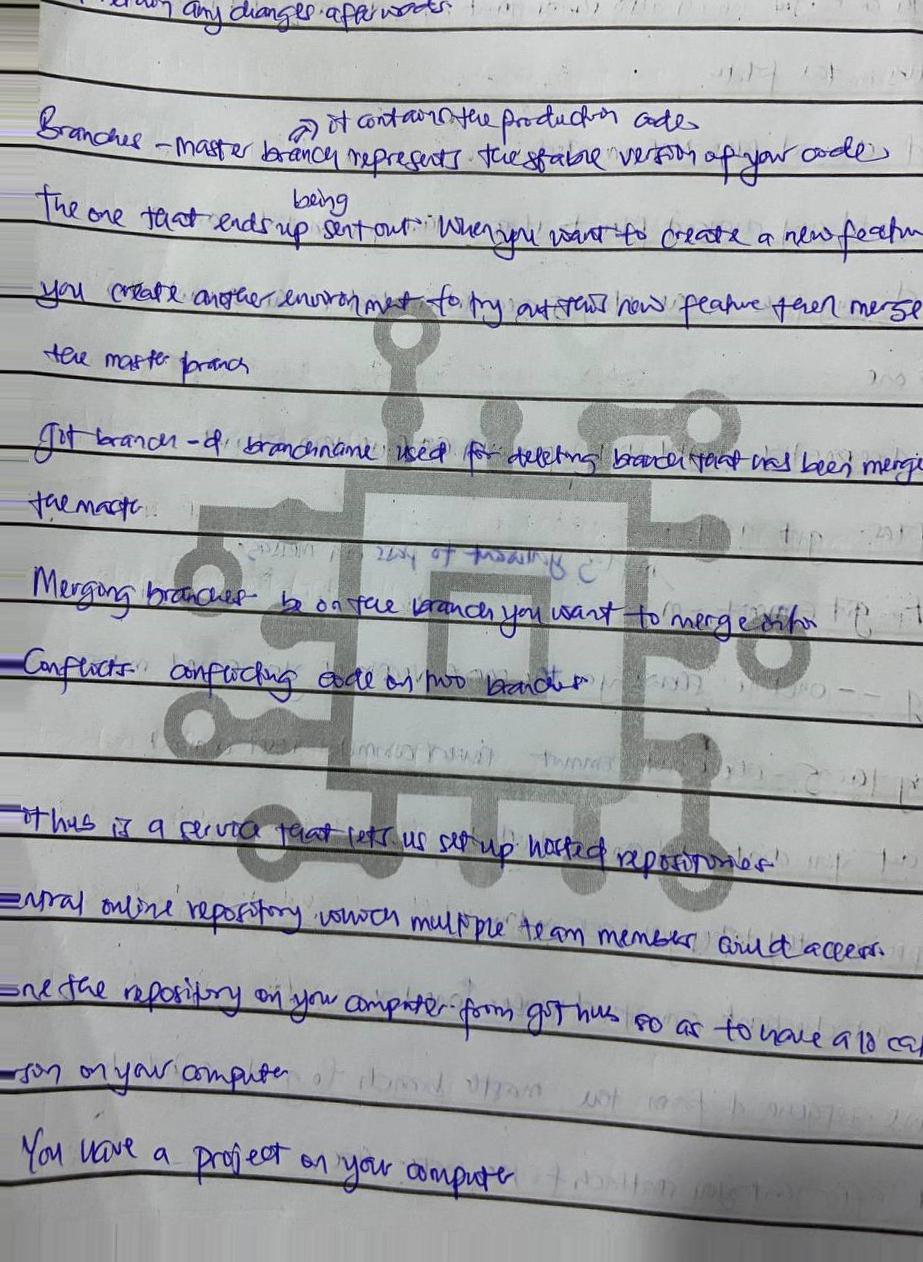 any changes afterwards.
it contains the production code
Branches - master branch represents the stable version of your code
being
The one that ends up sent out. When you want to create a new featu
you create another environment to try out this new feature then merge
the master branch
git branch -d branchname used for deleting branch that has been merge
the master
Merging branches - be on the branch you want to merge onto
Conflicts - conflicting code on two branches
ithub is a service that lets us set up hosted repositories
entral online repository which multiple team member could access.
one the repository on your computer from github so as to have a local
sion on your computer
You have a project on your computer